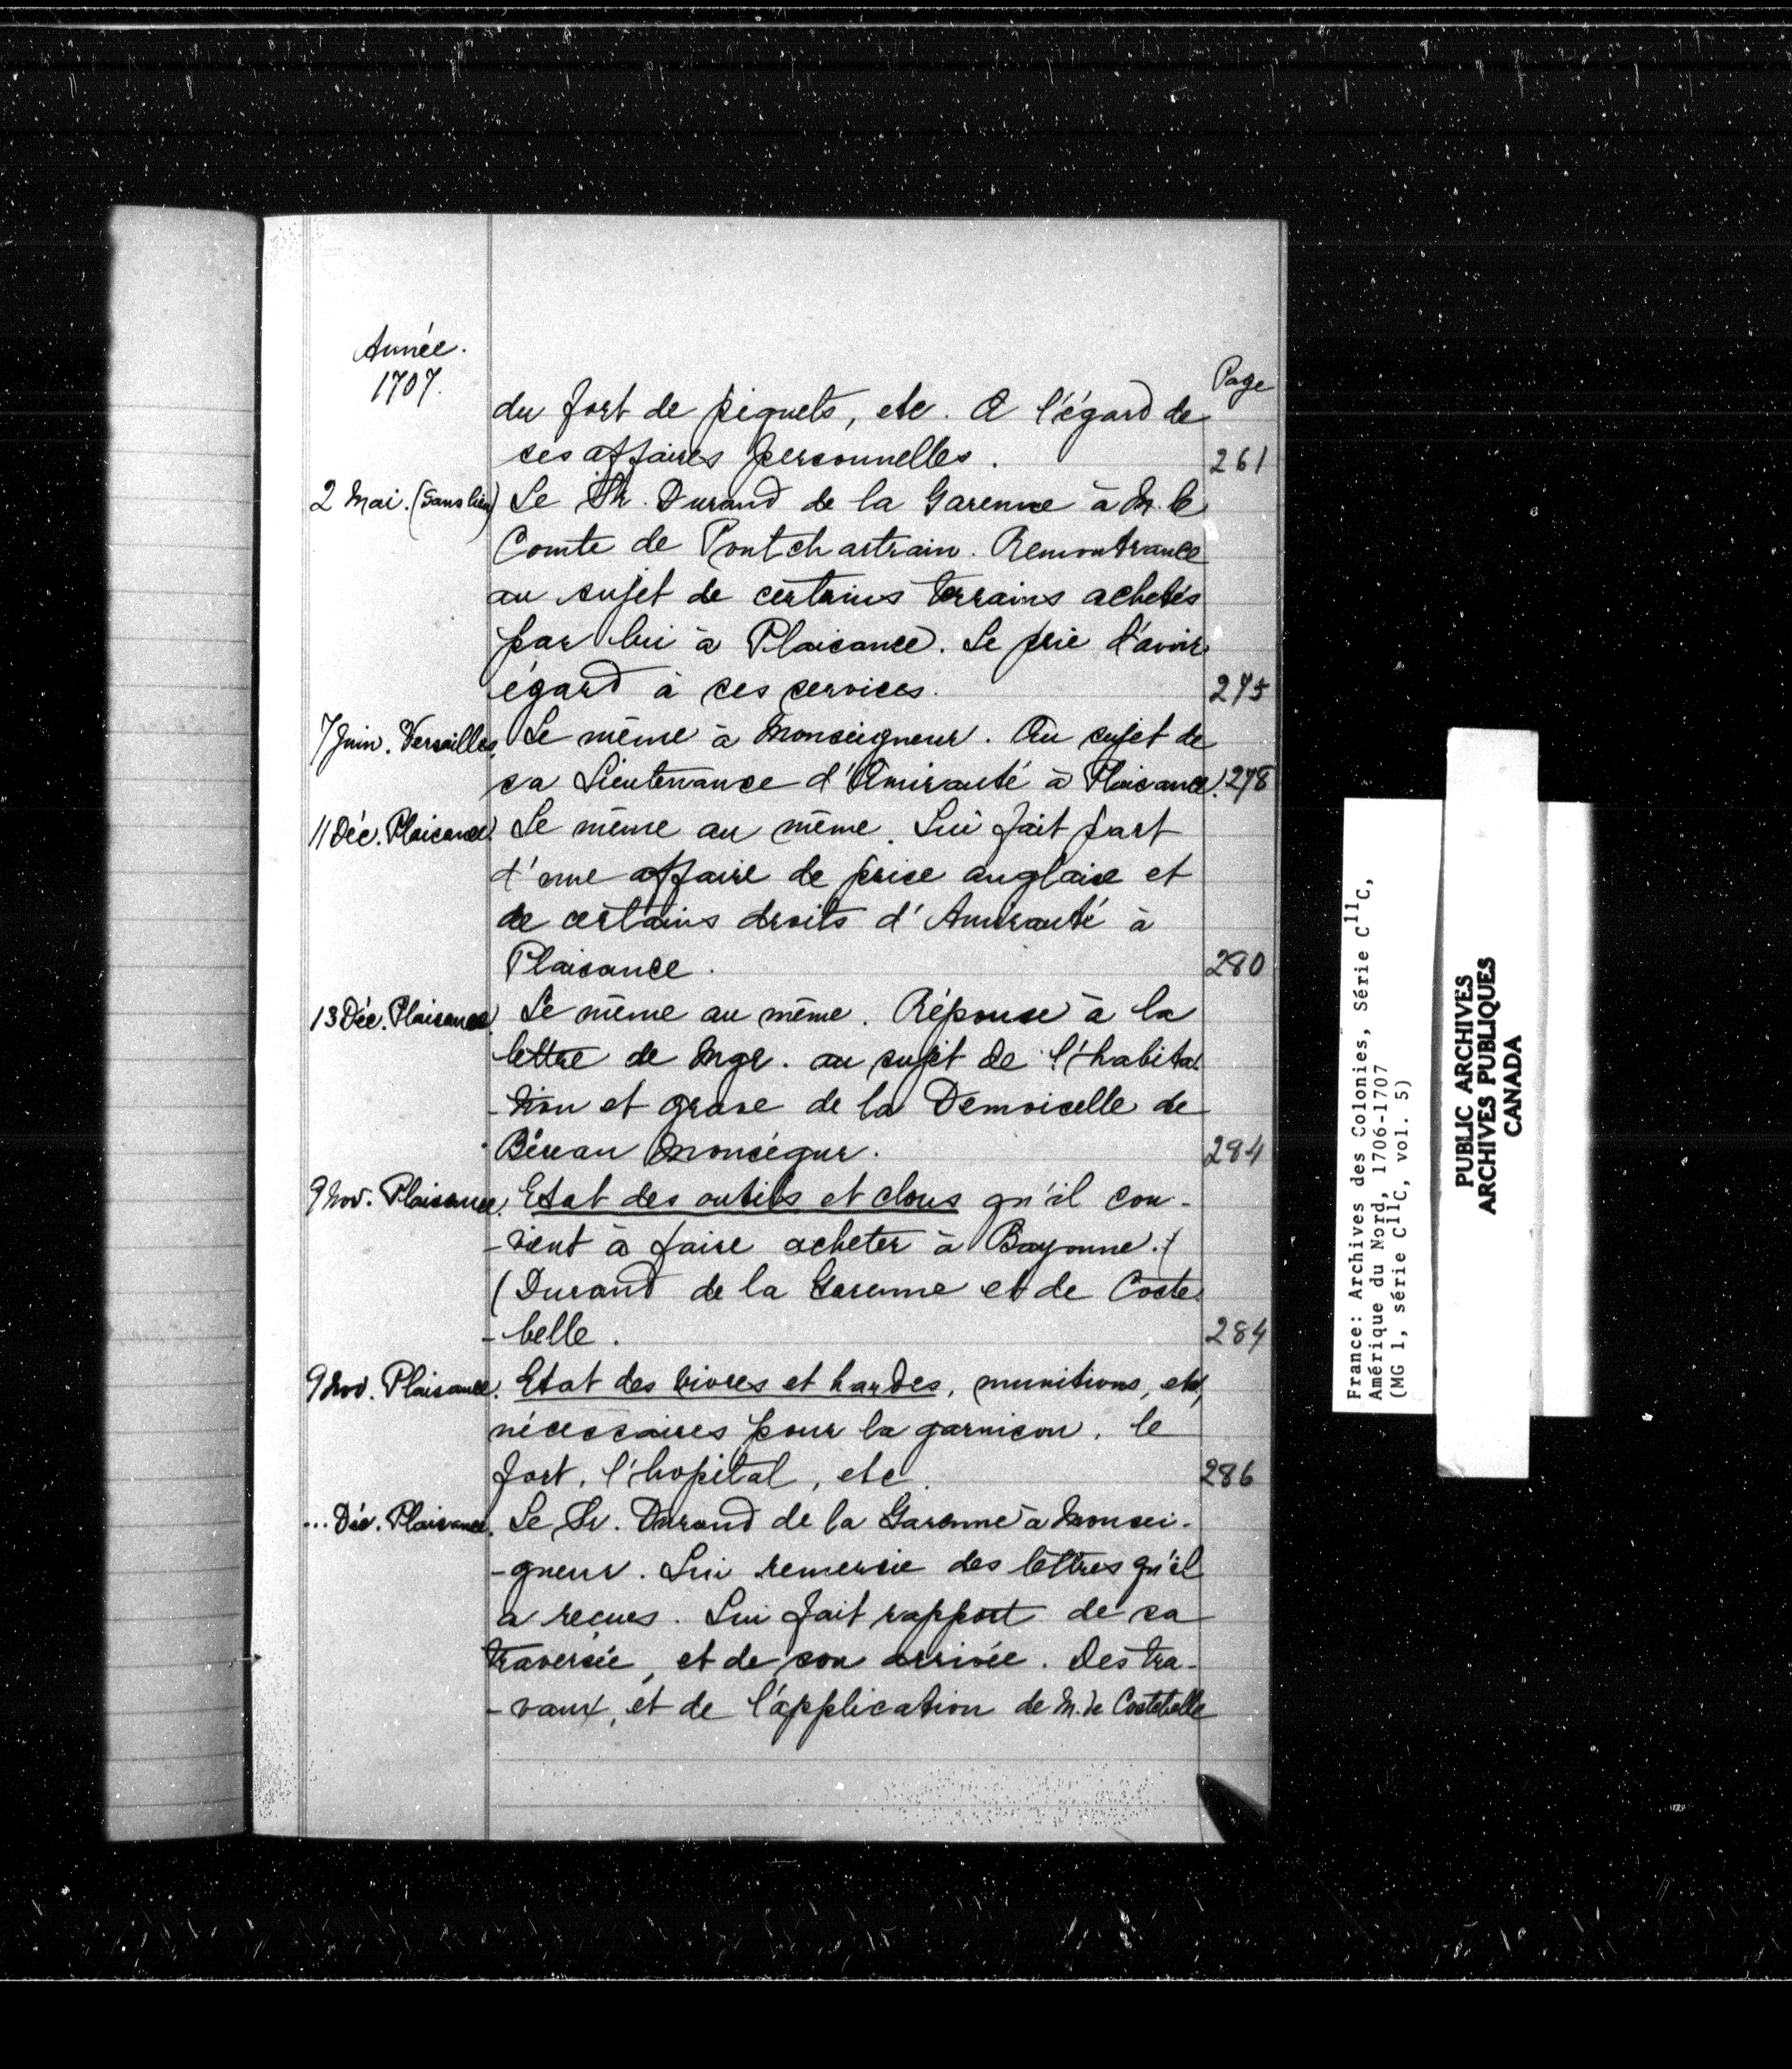 Année.
1707.
Page
du fort de piquets, etc. A l'égard de
ses affaires personnelles. 261
2 Mai. (Sans lieu) Le Sr. Durand de la Garenne à M. le
Comte de Pontchartrain. Remontrance
au sujet de certains terrains achetés
par lui à Plaisance. Le prie d'avoir
égard à ses services. 275
7 Juin. Versailles. Le même à Monseigneur. Au sujet de
sa Lieutenance d'Amirauté à Plaisance. 278
11 Déc. Plaisance. Le même au même. Lui fait part
d'une affaire de prise anglaise et
de certains droits d'Amirauté à
Plaisance. 280
13 Déc. Plaisance. Le même au même. Réponse à la
lettre de Mgr. au sujet de l'habita-
-tion et grave de la Demoiselle de
Béreau Monségur. 284
9 Nov. Plaisance. Etat des outils et clous qu'il con-
-vient à faire acheter à Bayonne.
(Durand de la Garenne et de Coste-
-belle. 284
9 Nov. Plaisance. Etat des vivres et hardes, munitions, etc,
nécessaires pour la garnison, le
fort, l'hopital, etc. 286
... Déc. Plaisance. Le Sr. Durand de la Garenne à Monsei-
-gneur. Lui remercie des lettres qu'il
a reçues. Lui fait rapport de sa
traversée, et de son arrivée. Des tra-
-vaux, et de l'application de M. de Costebelle
France: Archives des Colonies, Série C11C,
Amérique du Nord, 1706-1707
(MG 1, série C11C, vol. 5)
PUBLIC ARCHIVES
ARCHIVES PUBLIQUES
CANADA